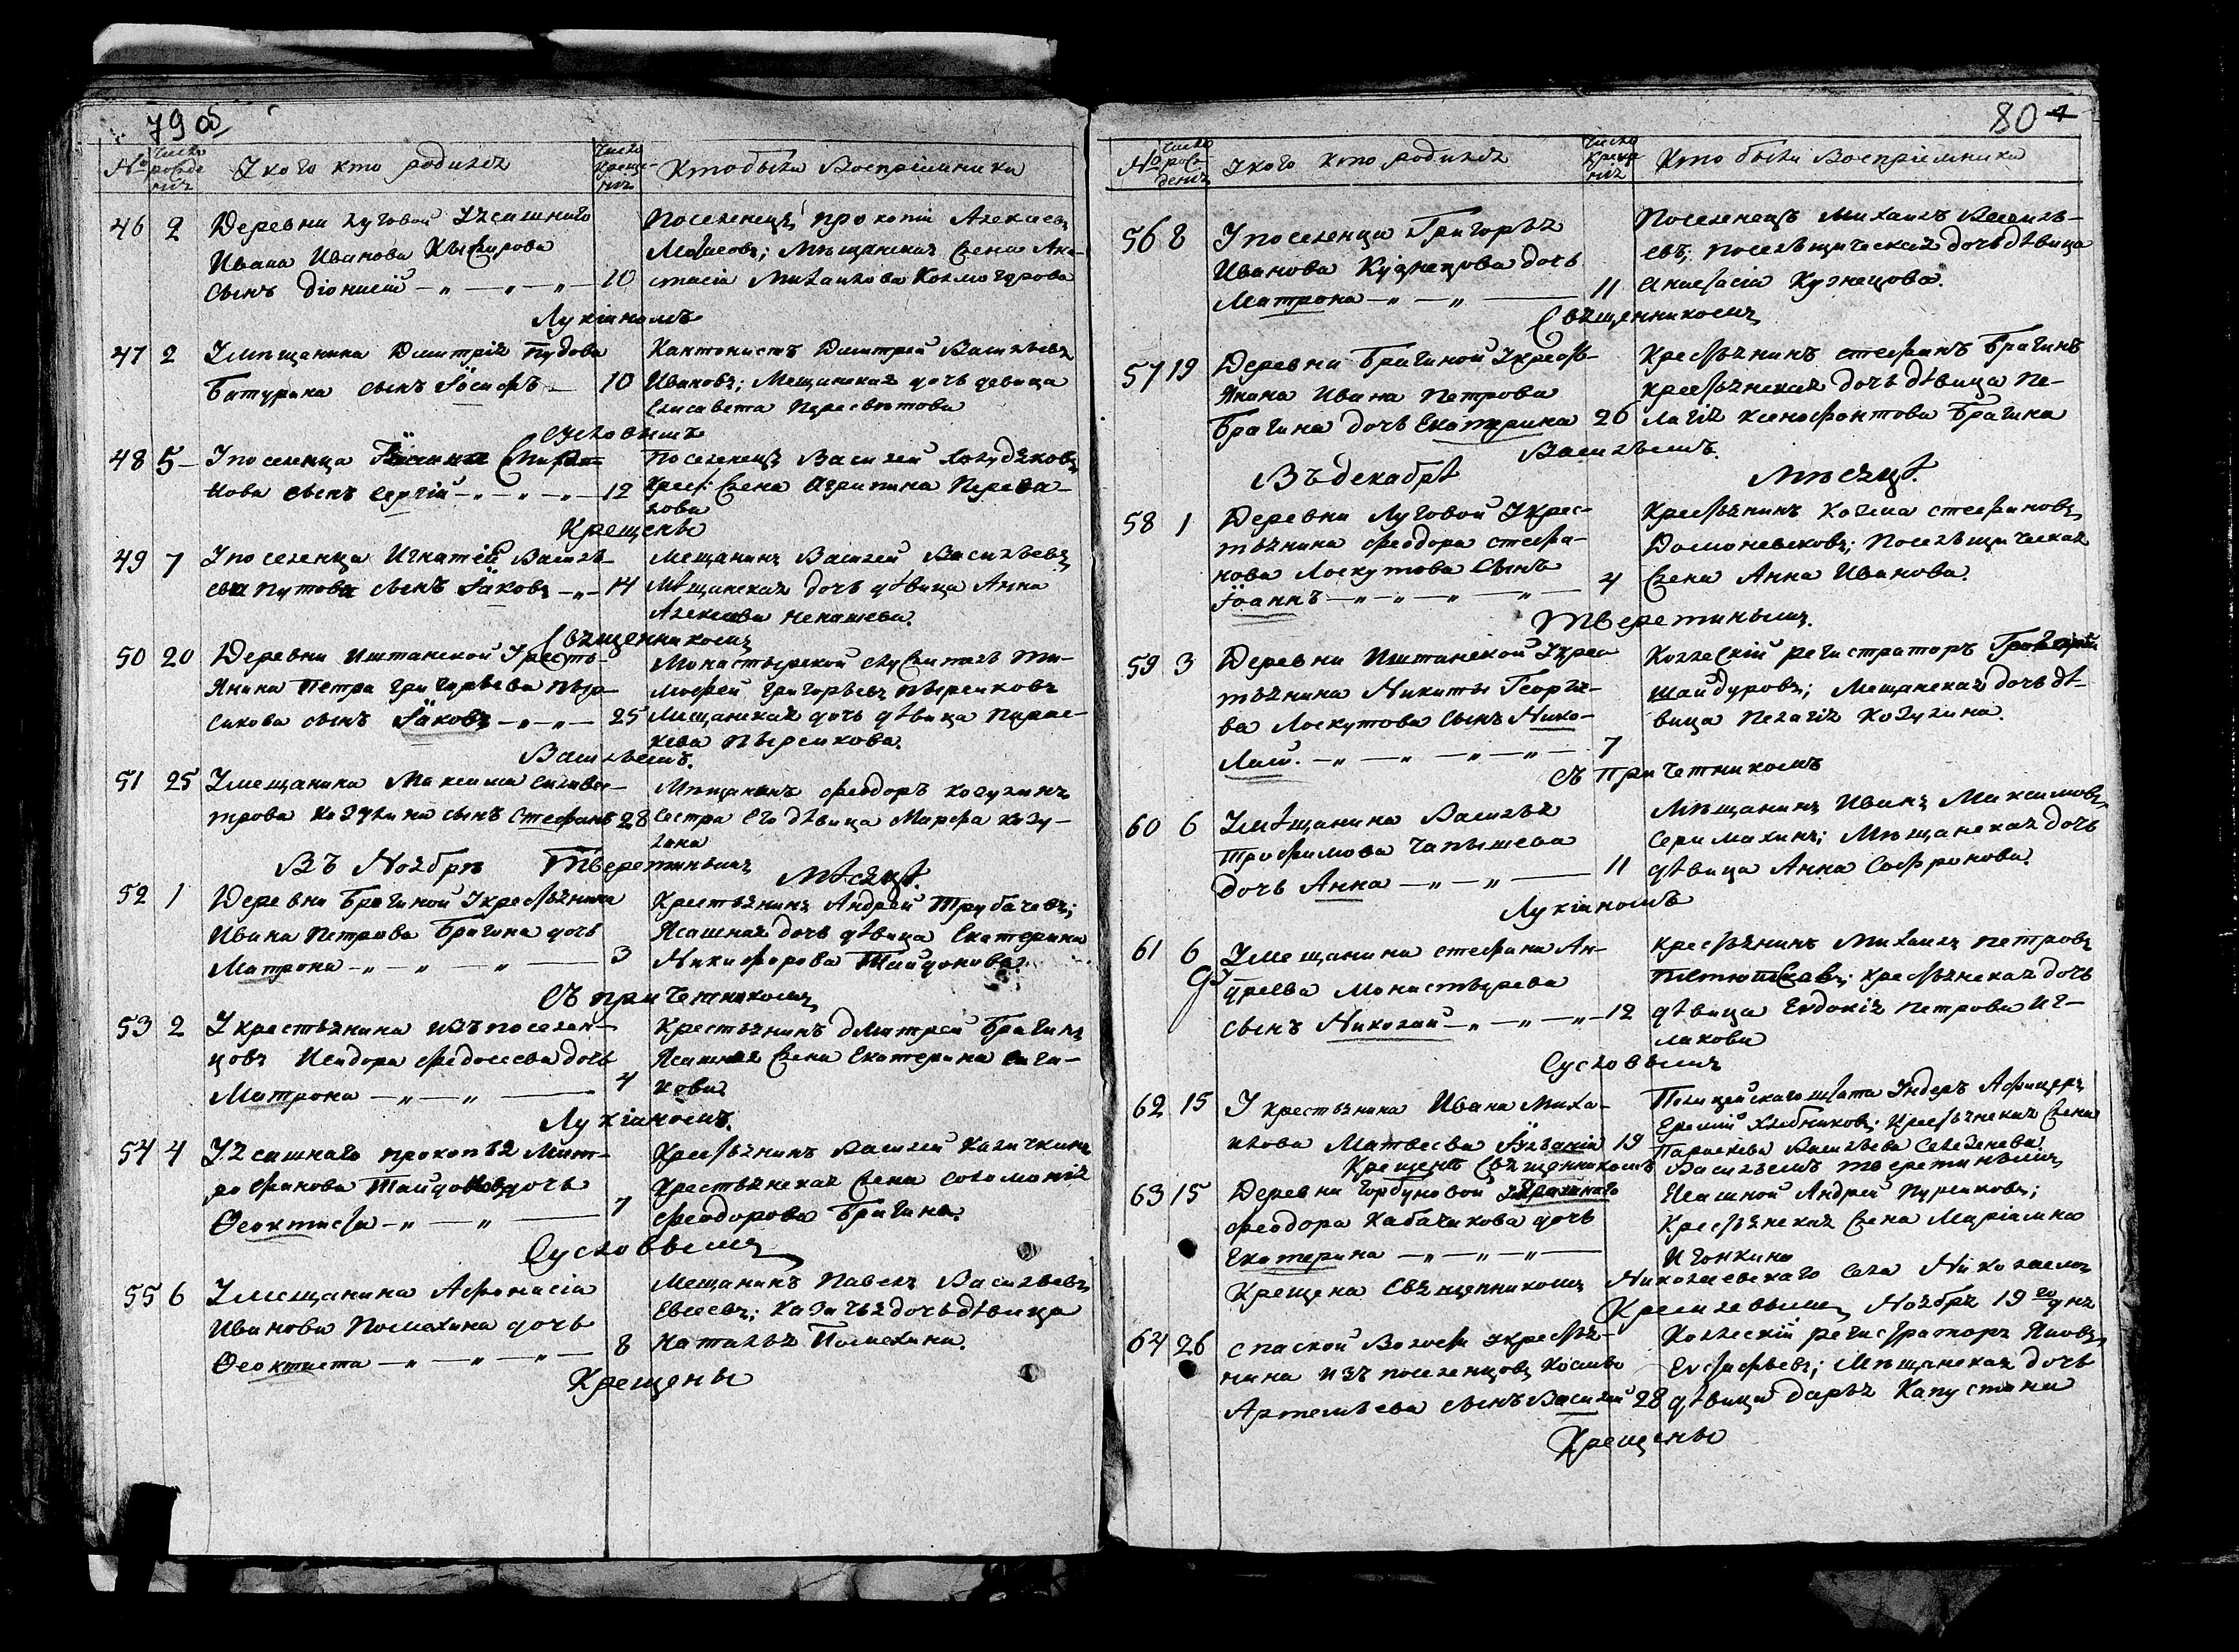 79 об
№
Число рожде нія
У кого кто родился
Число креще- нія
Кто были Воспріемники
46 2 Деревни луговой Уясашнаго
Ивана Иванова
сынъ діонисій 10
Поселенецъ прокопій Алексеевъ
Мещанская жена Ана-
стасія Михаилова
Лукіаномъ
47 2 Умѣщанина Димитрія Пудова
Батурина сынъ Іосифъ 10
Кантонистъ Димитрей Васильевъ
Ивановъ; Мещанская дочь девица
Елисавета Пересветова
Сусловымъ
48 5 У поселенца
нова сынъ Сергій 12
Поселенецъ Василей Холудяковъ
крест: жена Агрипина Перева-
лова
Крещены
49 7 У поселенца Игнатія Василь-
ева Путова сынъ Іаковъ 14
Мещанинъ Василей Васильевъ
Мѣщанская дочь дѣвица Анна
Алексеева Ненашева.
Священникомъ
50 20 Деревни Иштанской Укресть-
янина Петра Григорьева Пыр-
сикова сынъ Іаковъ 25
Монастырской служитель Ти-
мофей Григорьевъ Пырсиковъ
Мещанская дочь дѣвица Парас-
кева Пырсикова.
Васильемъ.
51 25 Умещанина Максима Сильвес-
трова Козулина сынъ Стефанъ 28
Мѣщанинъ Феодоръ Козулинъ
Сестра Его дѣвица Марфа Козу-
лина
Тверетинымъ
Въ Ноябрѣ Мѣсяцѣ.
52 1 Деревни Брагиной Укрестьянина
Ивана Петрова Брагина дочь
Матрона 3
Крестьянинъ Андрей Трубачевъ;
Ясашная дочь дѣвица Екатерина
Никифорова Тайдонова.
Съ причетникомъ
53 2 У крестьянина изъ поселен-
цовъ Исидора Федосеева дочь
Матрона 4
Крестьянинъ Дмитрей Брагинъ
Ясашная жена Екатерина
кова
Лукіаномъ.
54 4 Уясашнаго прокопья Мит-
рофанова Тайдонова дочь
Феоктиста 7
Крестьянинъ Василей Каличкинъ
Крестьянская жена Соломонія
Феодорова Брагина.
Сусловымъ
55 6 Умещанина Афонасія
Иванова Помахина дочь
Феоктиста 8
Мещанинъ Павелъ Васильевъ
Евсеевъ; Казачья дочь дѣвица
Наталья Помахина.
Крещены
80
№
Число рож- денія
У кого кто родился
Число креще нія
Кто были Воспріемники
56 8 У поселенца Григорья
Иванова Кузнецова дочь
Матрона 11
Поселенецъ Михаилъ Василь-
евъ; поселѣщическая дочь дѣвица
Анастасія Кузнецова.
Священникомъ
57 19 Деревни Брагиной Укрест-
янина Ивана Петрова
Брагина дочь Екатерина 26
Крестьянинъ Стефанъ Брагинъ
крестьянская дочь дѣвица Пе-
лагія Ксенофонтова Брагина
Васильемъ.
Въ декабрѣ Мѣсяцѣ.
58 1 Деревни Луговой Укрес-
тьянина Феодора Стефа-
нова Лоскутова Сынъ
Іоаннъ 4
Крестьянинъ Козма Стефановъ
Домоневсковъ; Поселѣщическая
жена Анна Иванова.
Тверетинымъ.
59 3 Деревни Иштанской Укрес
тьянина Никиты Георгіе-
ва Лоскутова Сынъ Нико-
лай. 7
Коллежскій регистраторъ Григорій
Шайдуровъ; Мещанская дочь дѣ-
вица Пелагія Козулина.
Съ причетникомъ
60 6 Умѣщанина Василья
Трофимова Чапышева
дочь Анна 11
Мѣщанинъ Иванъ Максимовъ
Серимахинъ; Мѣщанская дочь
дѣвица Анна Софронова.
Лукіаномъ
61 6 Умещанина Стефана Ан-
дреева Монастырева
сынъ Николай 12
Крестьянинъ Михаилъ Петровъ
крестьянская дочь
дѣвица Евдокія Петрова Иг-
лакова
Сусловымъ
62 15 У крестьянина Ивана Миха-
илова Матвеева Іуліанія 19
Полицейскаго штата Ундеръ Афицеръ
Еремій Хлѣбниковъ; Крестьянская жена
Параскева Васильева Селезенева
Крещенъ Священникомъ Васильемъ Тверетинымъ
63 15 Деревни Горбуновой Уясашнаго
Феодора Кабачикова дочь
Екатерина
Ясашной Андрей Пурсиковъ;
Крестьянская жена Маріамна
Игонкина
Крещена Священникомъ Николаевскаго Села Николаемъ
Кремлевымъ Ноября 19го дня
64 26 Спаской Волости Укрестья-
нина изъ поселенцовъ Косьмы
Артемьева сынъ Василей 28
Коллежскій регистраторъ Яковъ
Евстафьевъ; Мѣщанская дочь
дѣвица Дарья Капустина
Крещены